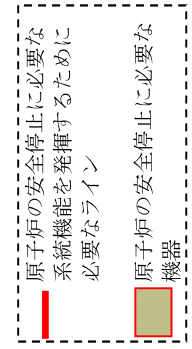 原子炉の安全停止に必要な
系統機能を発揮するために
必要なライン
原子炉の安全停止に必要な
機器